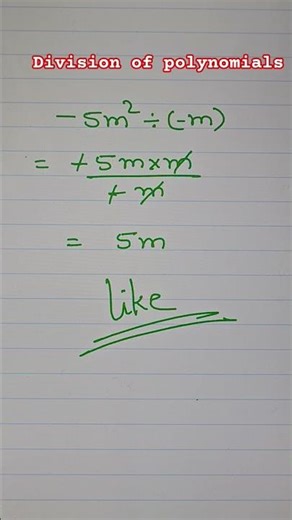 Division of polynomials
-5m² ÷ (-m)
= +5m×m
+m
= 5m
like